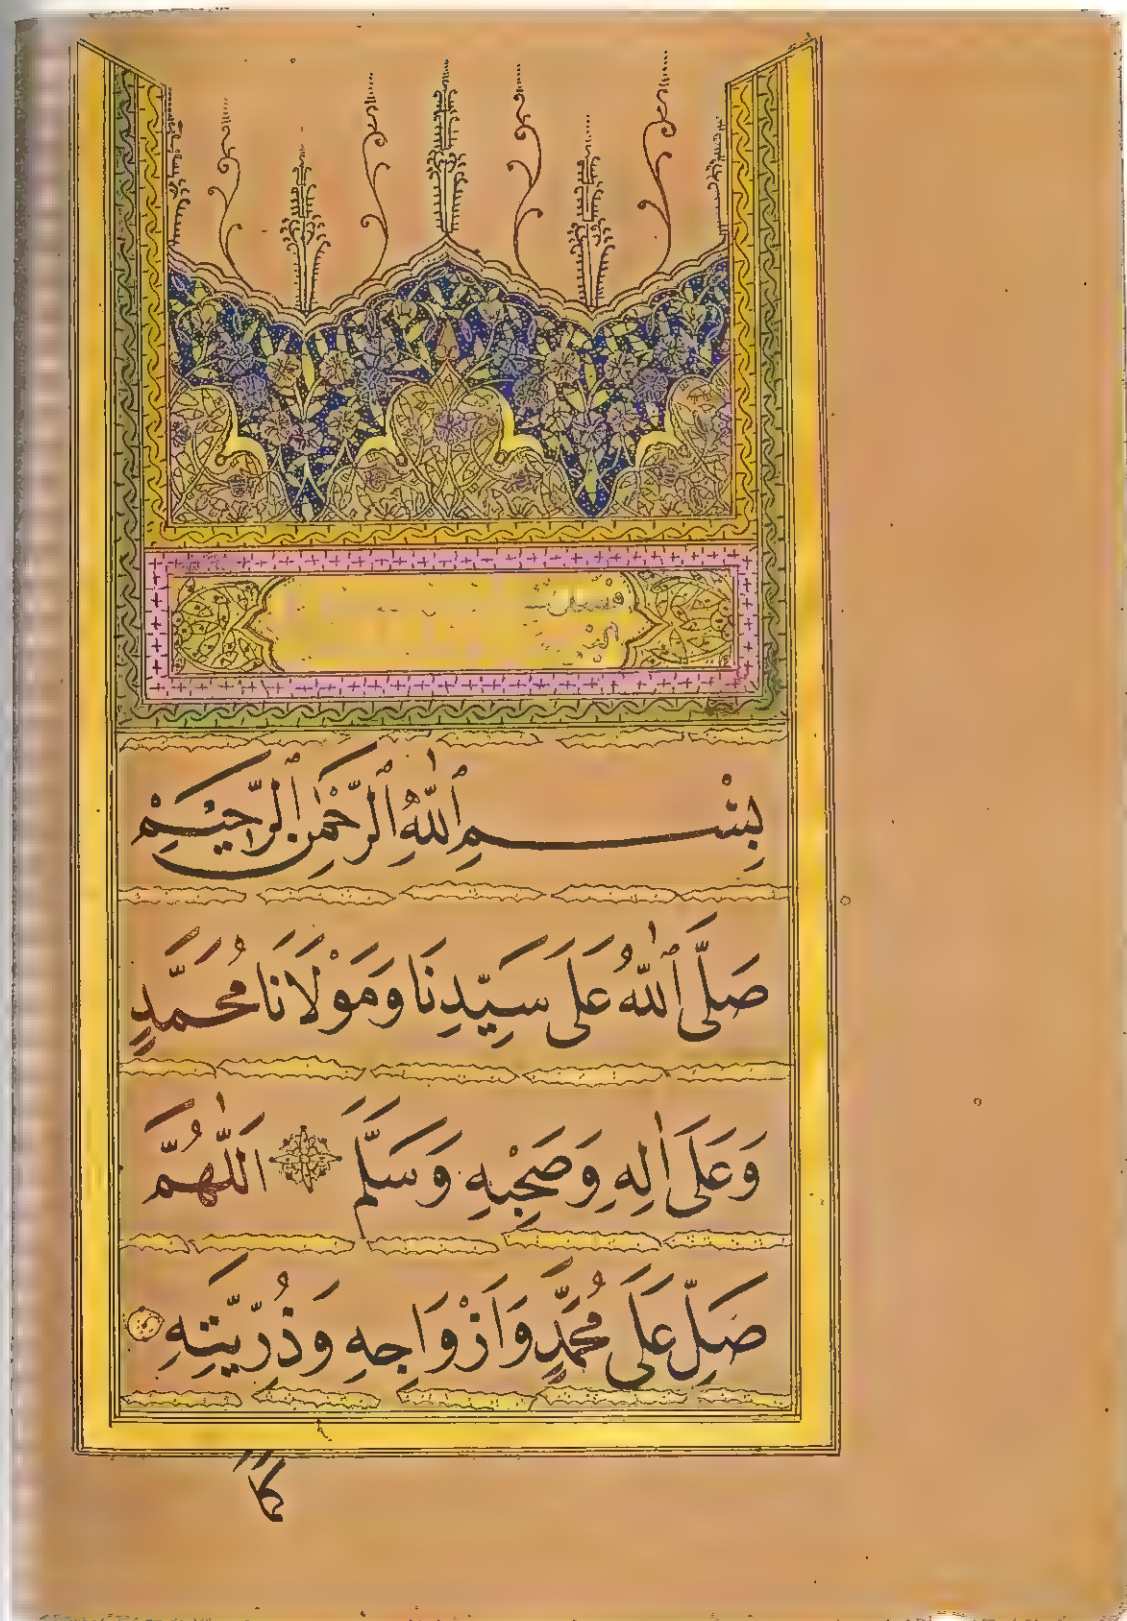 بِسْمِ ٱللّٰهِ ٱلرَّحْمٰنِ ٱلرَّحِيْمِ
صَلَّى ٱللّٰهُ عَلَى سَيِّدِنَا وَمَوْلَانَا مُحَمَّدٍ
وَعَلَى اٰلِهِ وَصَحْبِهِ وَسَلَّمَ اَللّٰهُمَّ
صَلِّ عَلَى مُحَمَّدٍ وَاَزْوَاجِهِ وَذُرِّيَّتِهِ
كَمَا